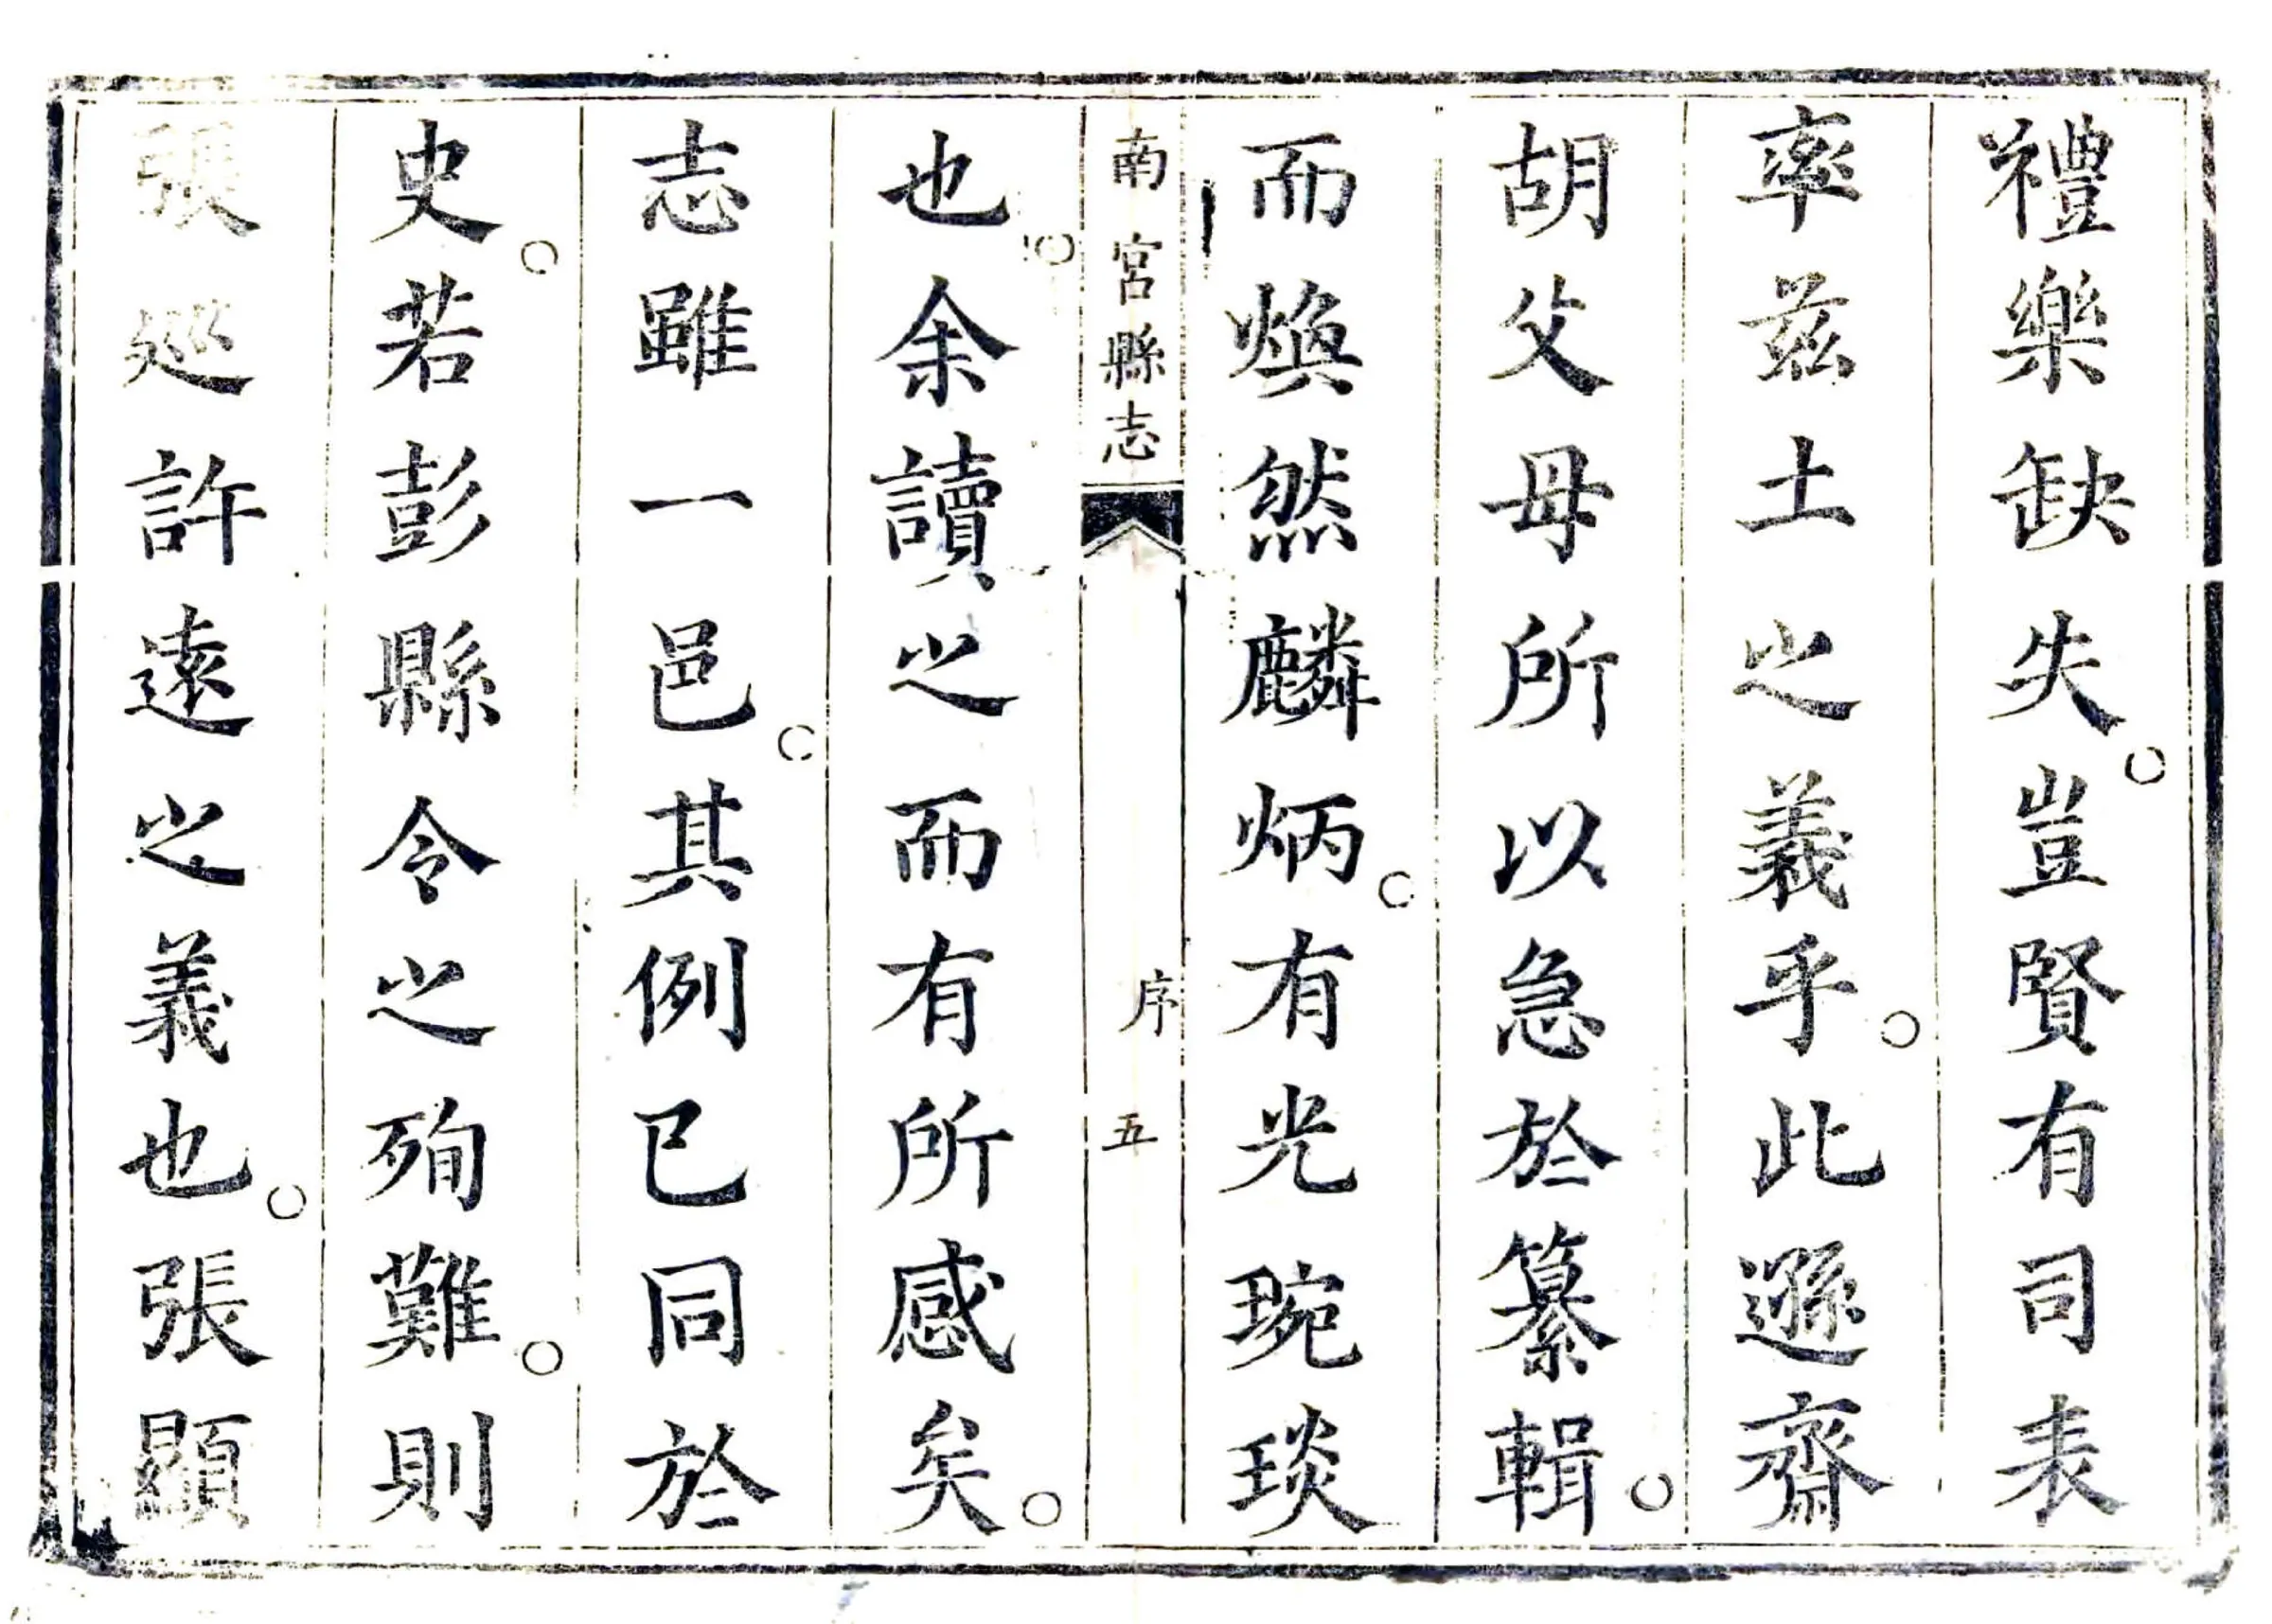 禮樂缺失○豈賢有司表
率兹土之義乎○此遜齋
胡父母所以急於纂輯○
而煥然麟炳○有光琬琰
南宮縣志 序 五
也○余讀之而有所感矣○
志雖一邑○其例已同於
史○若彭縣令之殉難○則
張巡許遠之義也○張顯